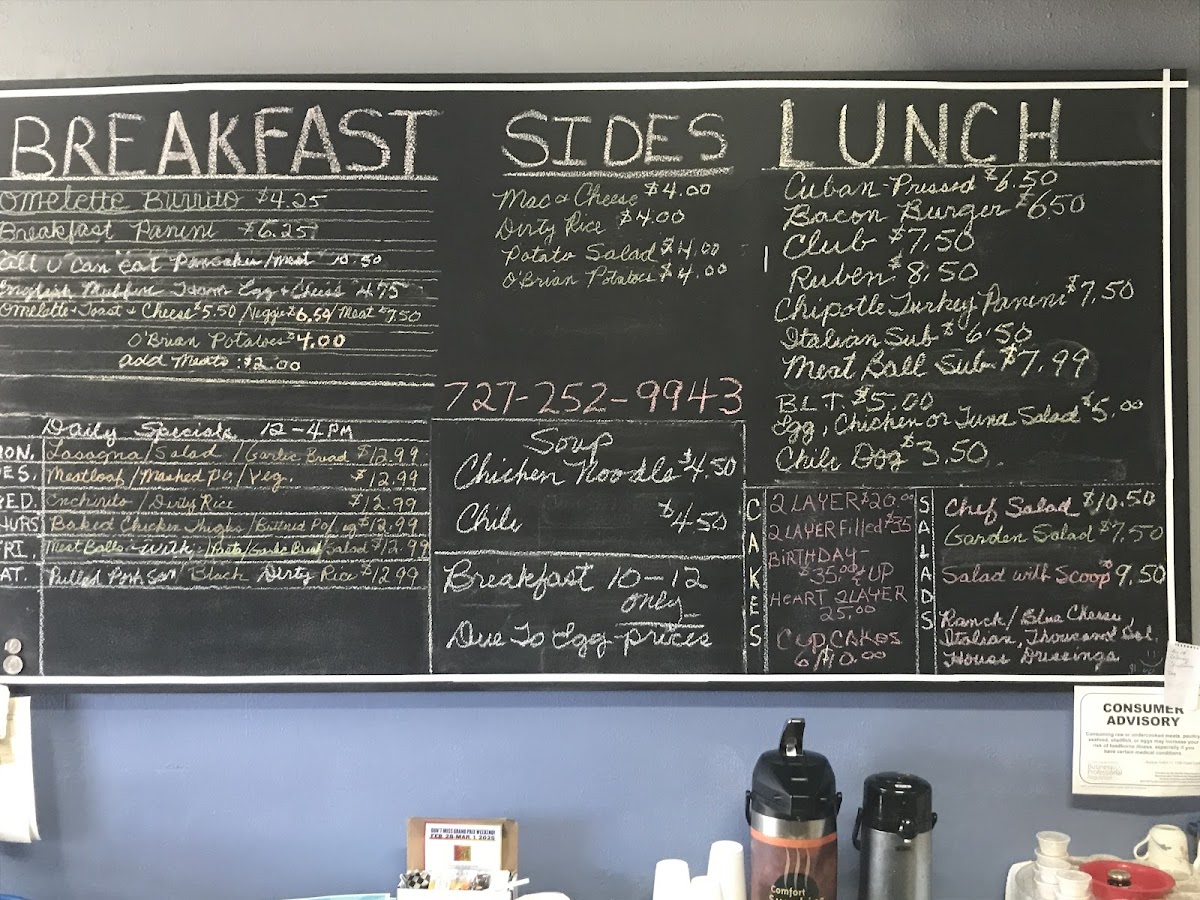 BREAKFAST
Omelette Burrito $4.25
Breakfast Panini $6.25
All U Can eat Pancakes/Meat 10.50
English Muffin Ham Egg & Cheese 4.75
Omelette + Toast + Cheese $5.50 /Veggie $6.50/ Meat $7.50
O'Brian Potatoes $4.00
add Meats: $2.00
Daily Specials 12-4PM
MON. Lasagna/Salad /Garlic Bread $12.99
ES. Meatloaf/Mashed Po./Veg. $12.99
ED. Enchirito / Dirty Rice $12.99
HURS Baked Chicken Thighs /Buttered Po/ $12.99
FRI. Meat Balls with /Pasta/Garlic Bread/Salad $12.99
AT. Pulled Pork San/Black Dirty Rice $12.99
SIDES
Mac & Cheese $4.00
Dirty Rice $4.00
Potato Salad $4.00
O'Brian Potatoes $4.00
727-252-9943
Soup
Chicken Noodle $4.50
Chili $4.50
Breakfast 10-12
only
Due To Egg prices
LUNCH
Cuban-Pressed $6.50
Bacon Burger $650
Club $7.50
Ruben $8.50
Chipotle Turkey Panini $7.50
Italian Sub $6.50
Meat Ball Sub $7.99
B.L.T. $5.00
Egg, Chicken or Tuna Salad $5.00
Chili Dog $3.50
CAKES
2 LAYER $20.00
2 LAYER Filled $35
BIRTHDAY-
$35.00 & UP
HEART 2 LAYER
25.00
CUPCAKES
6/10.00
SALADS
Chef Salad $10.50
Garden Salad $7.50
Salad with Scoop $9.50
Ranch/Blue Cheese,
Italian, Thousand Isl,
House Dressings
CONSUMER
ADVISORY
Consuming raw or undercooked meats, poultry,
seafood, shellfish, or eggs may increase your
risk of foodborne illness, especially if you
have certain medical conditions
Business
Professional
DON'T MISS GRAND PRIX WEEKEND!
FEB 28-MAR 1 2025
Comfort